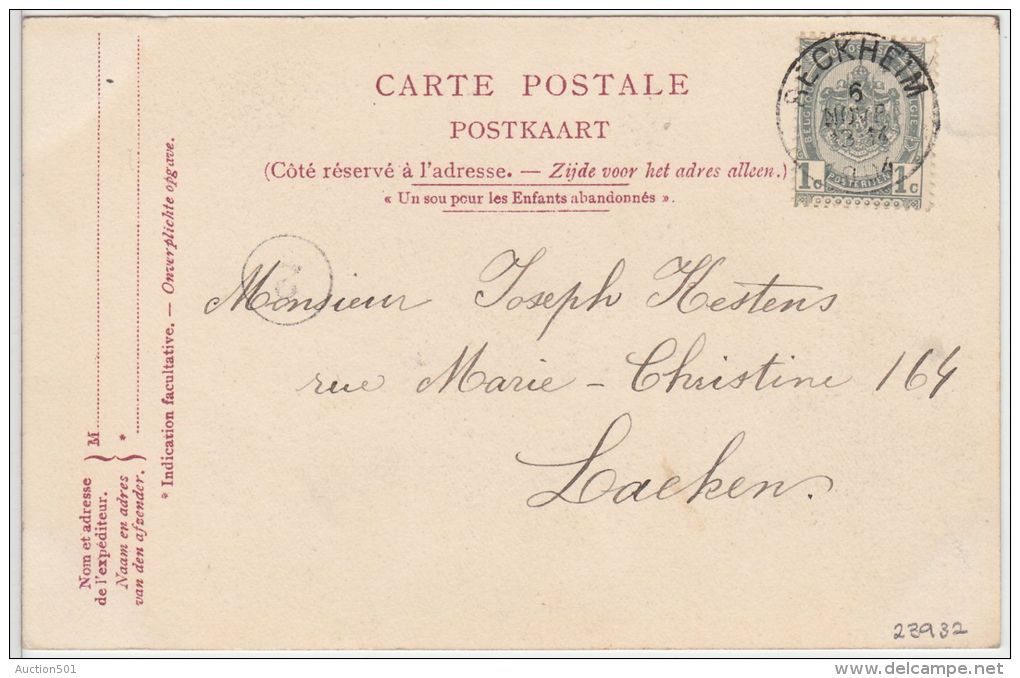 CARTE POSTALE
POSTKAART
(Côté réservé à l'adresse. — Zijde voor het adres alleen.)
« Un sou pour les Enfants abandonnés ».
RECKHEIM
6
NOVE
1 C POSTERIJEN 1 C
Monsieur Joseph Kestens
rue Marie-Christine 164
Laeken.
Nom et adresse
de l'expéditeur.
Naam en adres
van den afzender.
M
*
* Indication facultative. — Onverplichte opgave.
23932
Auction501
delcampe.net